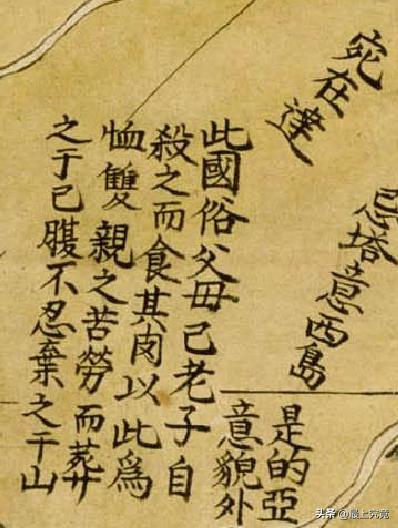 宛在達
忌塔意西島
是的亞
意貌外
此國俗父母已老子自
殺之而食其肉以此爲
恤雙親之苦勞而葬
之于己腹不忍棄之于山
头条